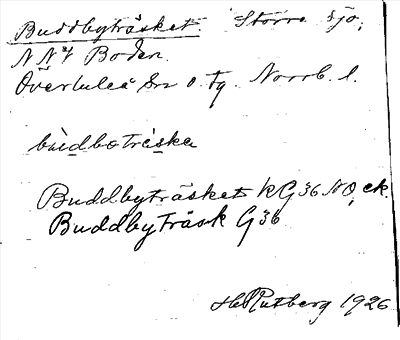 Buddbyträsket. Större sjö,
N N V Boden.
Överluleå Sn o. tg. Norrb. l.
bùdbotrǻska
Buddbyträsket kG 36 NO, ek.
Buddby Träsk G 36
H Rutberg 1926